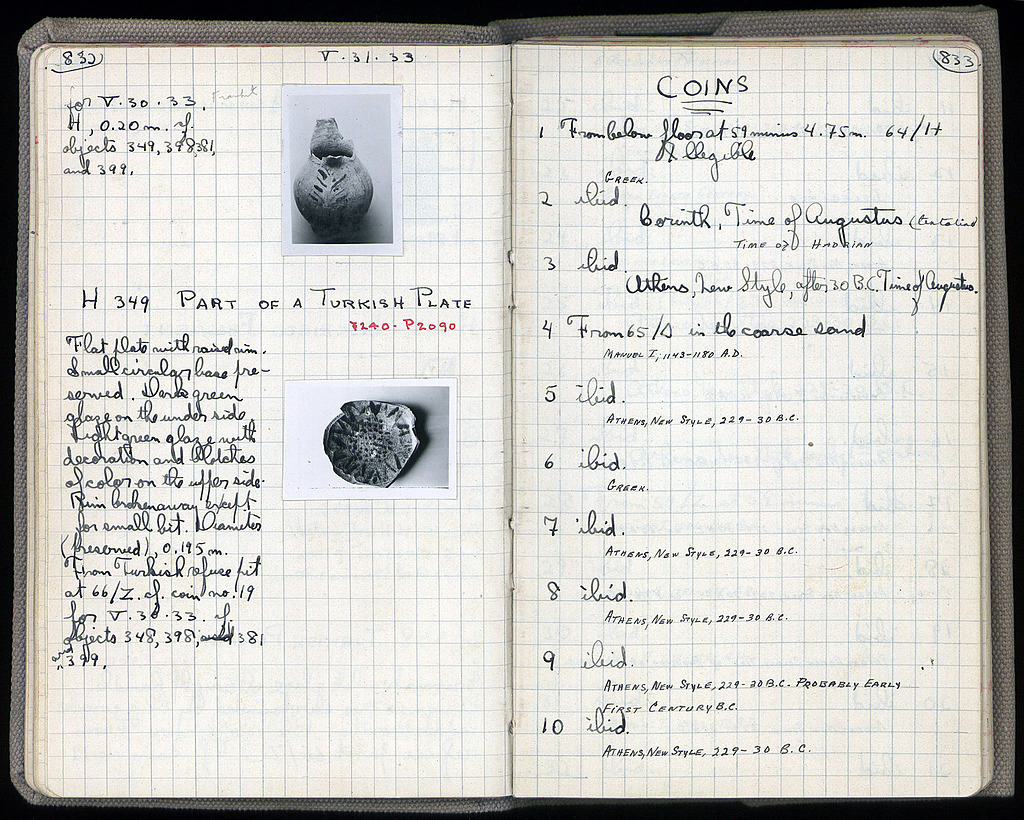 832
V·31·33
for V·30·33.
H, 0.20 m. cf.
objects 349, 398, 381,
and 399.
H 349 PART OF A TURKISH PLATE
P2090
Flat plate with raised rim.
Small circular base pre-
served. Dark green
glaze on the under side.
Light green glaze with
decoration and blotches
of color on the upper side.
Rim broken away except
for small bit. Diameter
(preserved), 0.195 m.
From Turkish refuse pit
at 66/Z. cf. coin no. 19
for V·30·33. cf.
objects 348, 398, 381
and 399.
833
COINS
1 From below floor at 59 minus 4.75 m. 64/H
Illegible
GREEK.
2 ibid.
Corinth, Time of Augustus
TIME OF HADRIAN
3 ibid.
Athens, New Style, after 30 B.C. Time of Augustus.
4 From 65/Δ in the coarse sand
MANUEL I, 1143-1180 A.D.
5 ibid.
ATHENS, NEW STYLE, 229-30 B.C.
6 ibid.
GREEK.
7 ibid.
ATHENS, NEW STYLE, 229-30 B.C.
8 ibid.
ATHENS, NEW STYLE, 229-30 B.C.
9 ibid.
ATHENS, NEW STYLE, 229-30 B.C. PROBABLY EARLY
FIRST CENTURY B.C.
10 ibid.
ATHENS, NEW STYLE, 229-30 B.C.